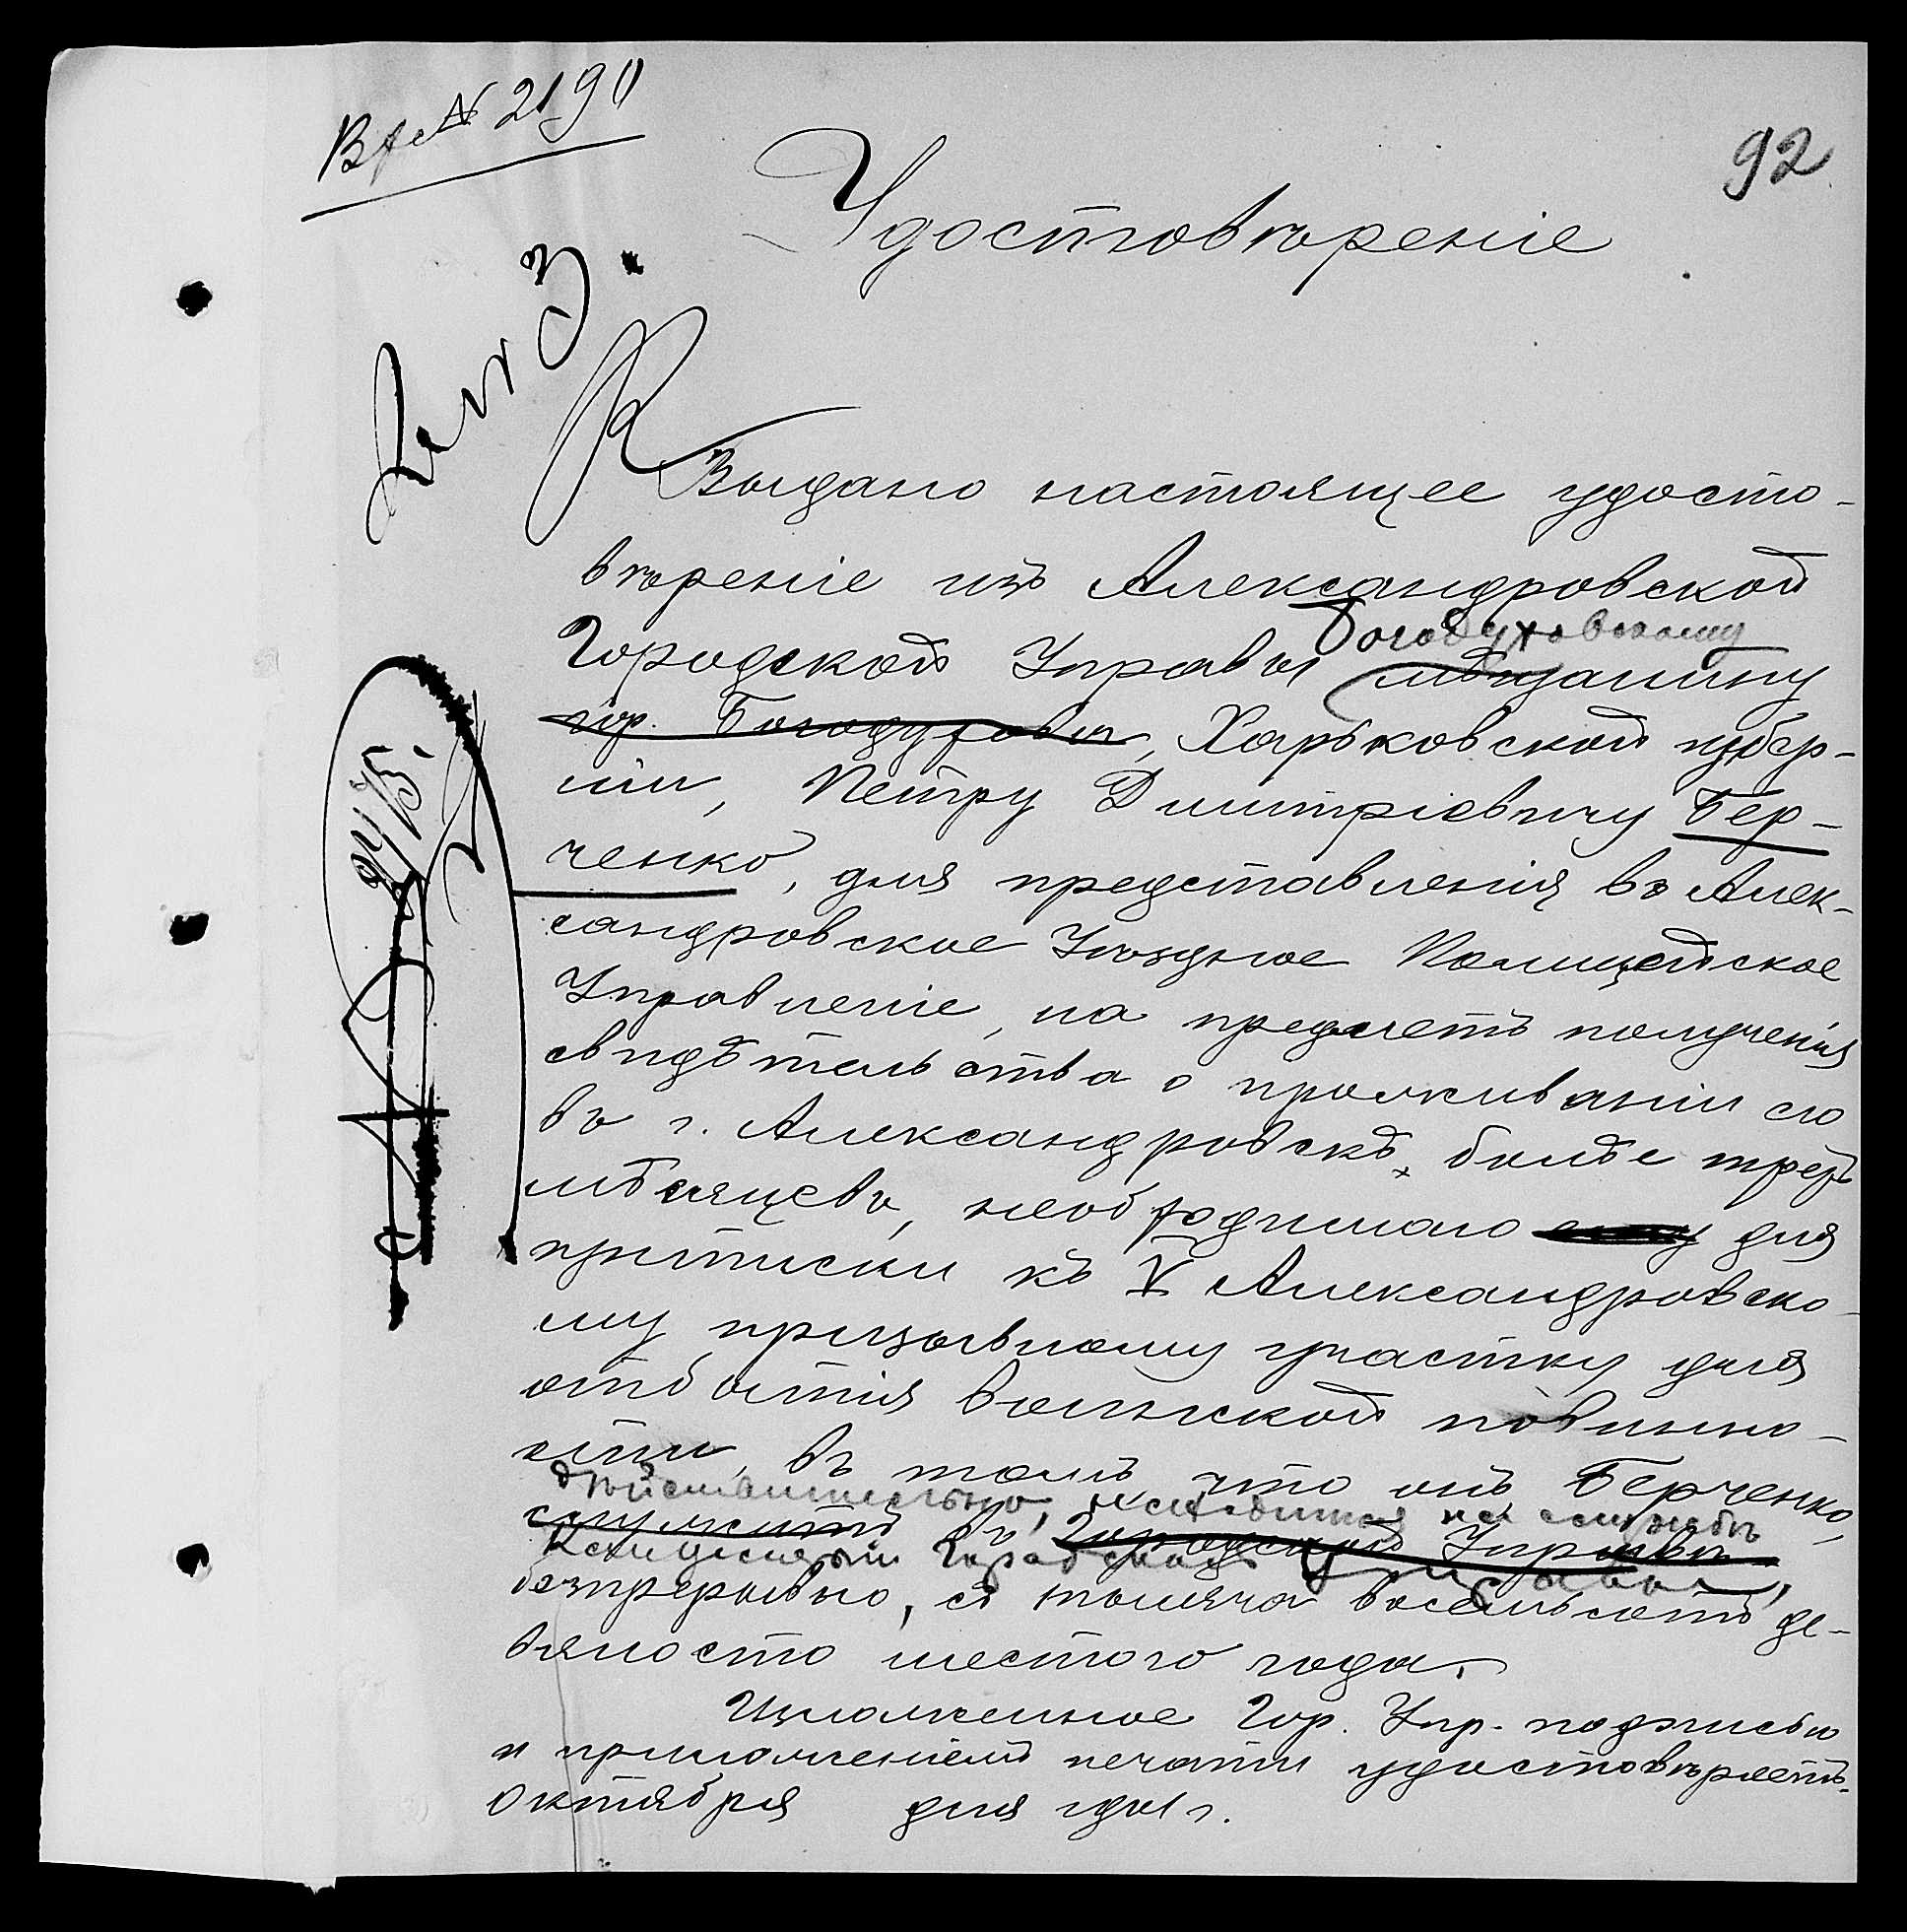 № 2190
92
Удостовѣреніе
Выдано настоящее удосто-
вѣреніе изъ Александровской
Богодуховскому
Городской Управы мѣщанину
гор. Богодухова, Харьковской губер-
ніи, Петру Димитріевичу Бер-
ченко, для представленія въ Алек-
сандровское Уѣздное Полицейское
Управленіе, на предметъ полученія
свидѣтельства о проживаніи его
въ г. Александровскѣ болѣе трехъ
мѣсяцевъ, необходимаго ему для
приписки къ V Александровско-
му призывному участку для
отбытія воинской повинно-
сти, въ томъ, что онъ Берченко,
дѣйствительно, находится на службѣ
служитъ въ Городской Управѣ
Канцеляріи Городской Управы,
безпрерывно, съ тысяча восемьсотъ де-
вяносто шестого года.
Изложенное Гор. Упр. подписью
и приложеніемъ печати удостовѣряетъ.
Октября дня 1901 г.